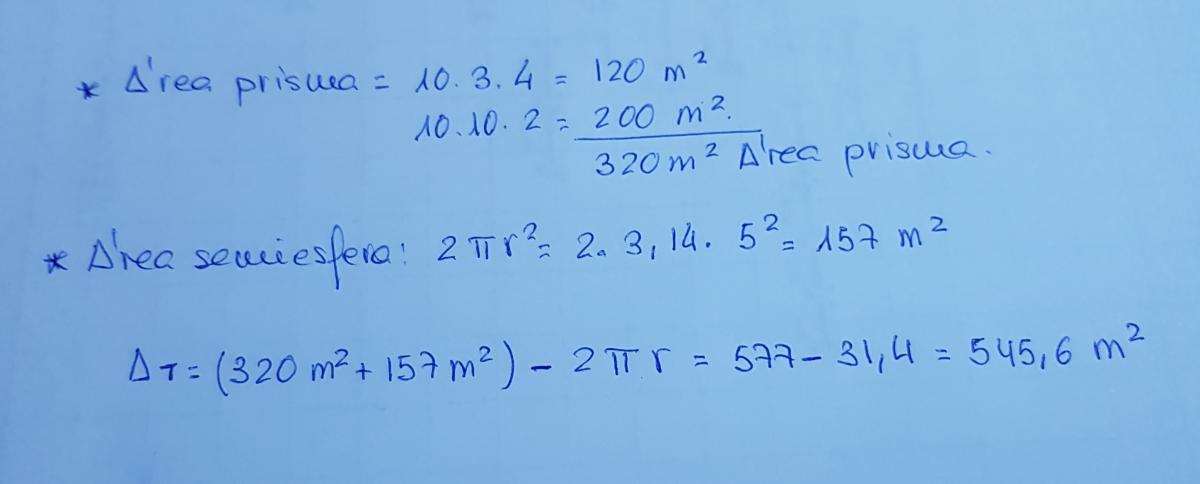 * Área prisma = 10. 3. 4 = 120 m²
10.10. 2 = 200 m².
320 m² Área prisma.
* Área semiesfera: 2πr² = 2. 3,14. 5² = 157 m²
AT = (320 m² + 157 m²) - 2πr = 577 - 31,4 = 545,6 m²